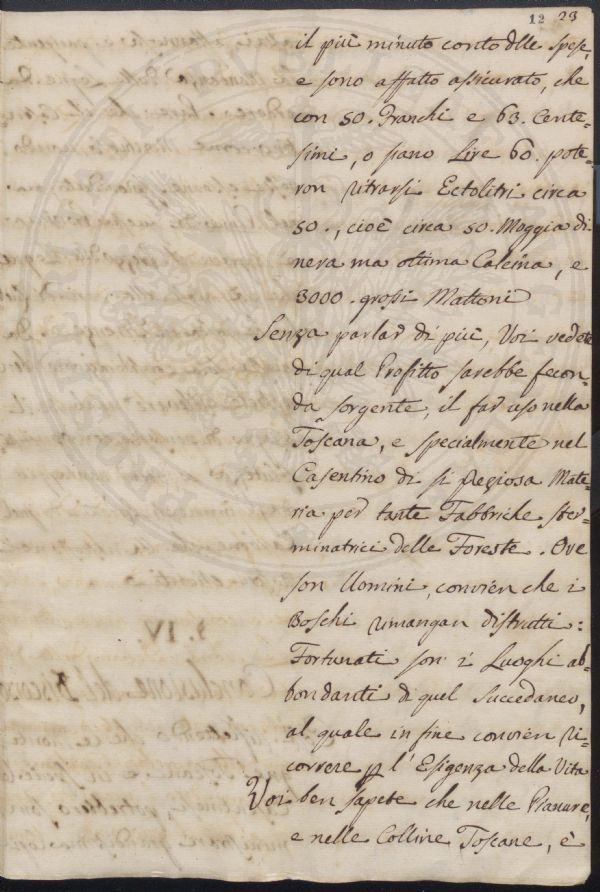 12 23
il più minuto conto dlle spese,
e sono affatto assicurato, che
con 50. Franchi e 63. Cente=
simi, o siano Lire 60. pote=
ron ritrarsi Ectolitri circa
50., cioè circa 50. Moggia di
nera ma ottima Calcina, e
3000. grossi Mattoni
Senza parlar di più, Voi vedete
di qual Profitto sarebbe fecon=
da sorgente, il far uso nella
Toscana, e specialmente nel
Casentino di sì pregiosa Mate=
ria per tante Fabbriche ster=
minatrici delle Foreste. Ove
son Uomini, convien che i
Boschi rimangan distrutti:
Fortunati son i Luoghi ab=
bondanti di quel succedaneo,
al quale in fine convien ri=
correre p l'Esigenza della Vita
Voi ben sapete che nelle Pianure,
e nelle Colline Toscane, è